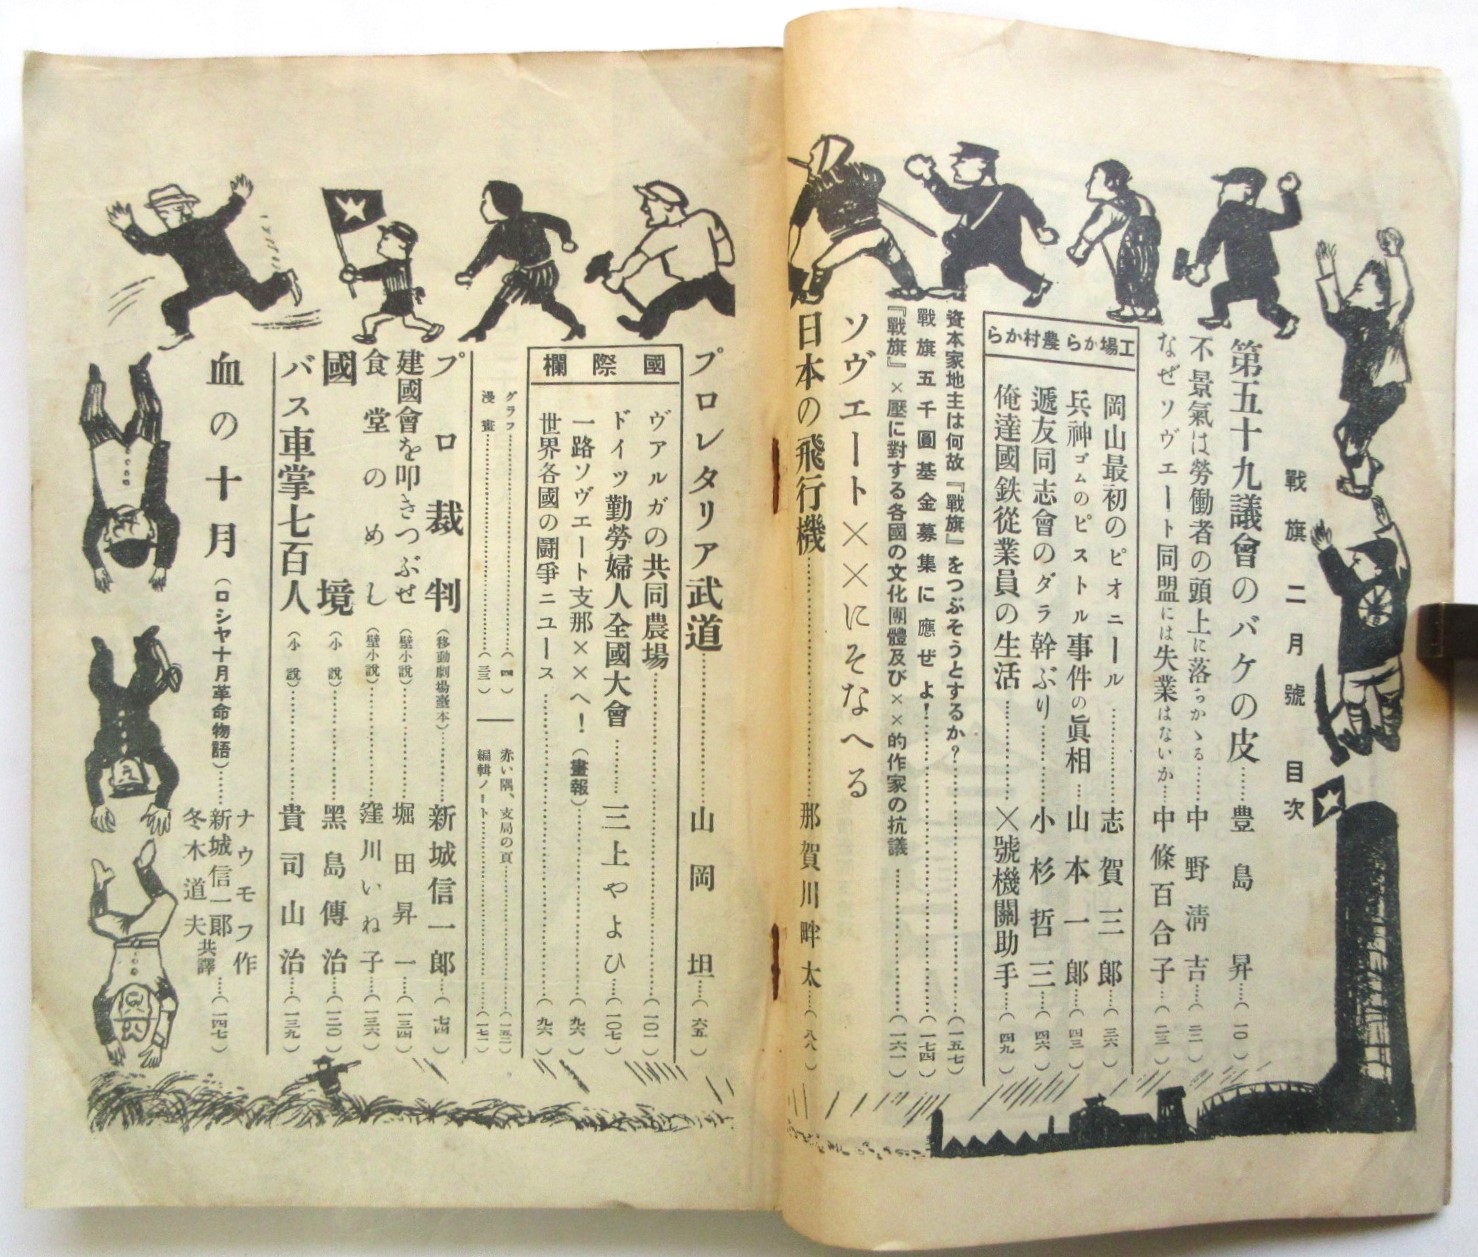 戰旗二月號目次
第五十九議會のバケの皮……豊島昇…(一〇)
不景氣は勞働者の頭上に落ちかゝる……中野淸吉…(二一)
なぜソヴエート同盟には失業はないか…中條百合子…(二三)
工場から農村から
岡山最初のピオニール……志賀三郎…(三六)
兵神ゴムのピストル事件の眞相…山本一郎…(四三)
遞友同志會のダラ幹ぶり……小杉哲三…(四六)
俺達國鉄從業員の生活……×號機關助手…(四九)
資本家地主は何故『戰旗』をつぶそうとするか?……(一五七)
戰旗五千圓基金募集に應ぜよ!……(一七四)
『戰旗』×壓に對する各國の文化團體及び××的作家の抗議……(一六一)
ソヴエート××にそなへる
日本の飛行機……那賀川畔太…(八八)
プロレタリア武道……山岡坦…(六五)
國際欄
ヴアルガの共同農場……(一〇一)
ドイツ勤勞婦人全國大會……三上やよひ…(一〇七)
一路ソヴエート支那××へ!(畫報)……(九六)
世界各國の鬪爭ニユース……(九六)
グラフ……(四)
赤い隅、支局の頁……(一五二)
漫畫……(三三)
編輯ノート……(一七二)
プロ裁判(移動劇場臺本)……新城信一郎…(七四)
建國會を叩きつぶせ(壁小說)……堀田昇一…(一三四)
食堂のめし(壁小說)……窪川いね子…(一三六)
國境(小說)……黑島傳治…(一二〇)
バス車掌七百人(小說)……貴司山治…(一三九)
血の十月(ロシヤ十月革命物語)……
ナウモフ作
新城信一郞
冬木道夫
共譯…(一四七)